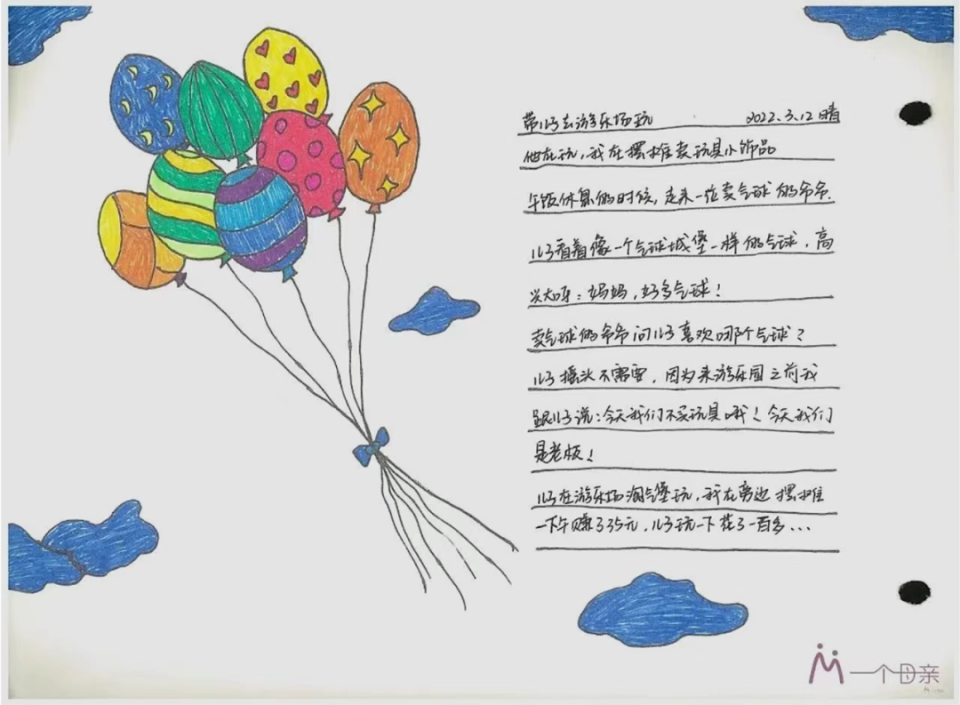 带儿子去游乐场玩 2022.3.12 晴
他在玩，我在摆摊卖玩具小饰品
午饭休息的时候，走来一位卖气球的爷爷.
儿子看着像一个气球城堡一样的气球，高
兴大呼：妈妈，好多气球！
卖气球的爷爷问儿子喜欢哪个气球？
儿子摇头不需要，因为来游乐园之前我
跟儿子说：今天我们不买玩具哦！今天我们
是老板！
儿子在游乐场淘气堡玩，我在旁边摆摊
一下午赚了35元，儿子玩一下花了一百多...
一个母亲